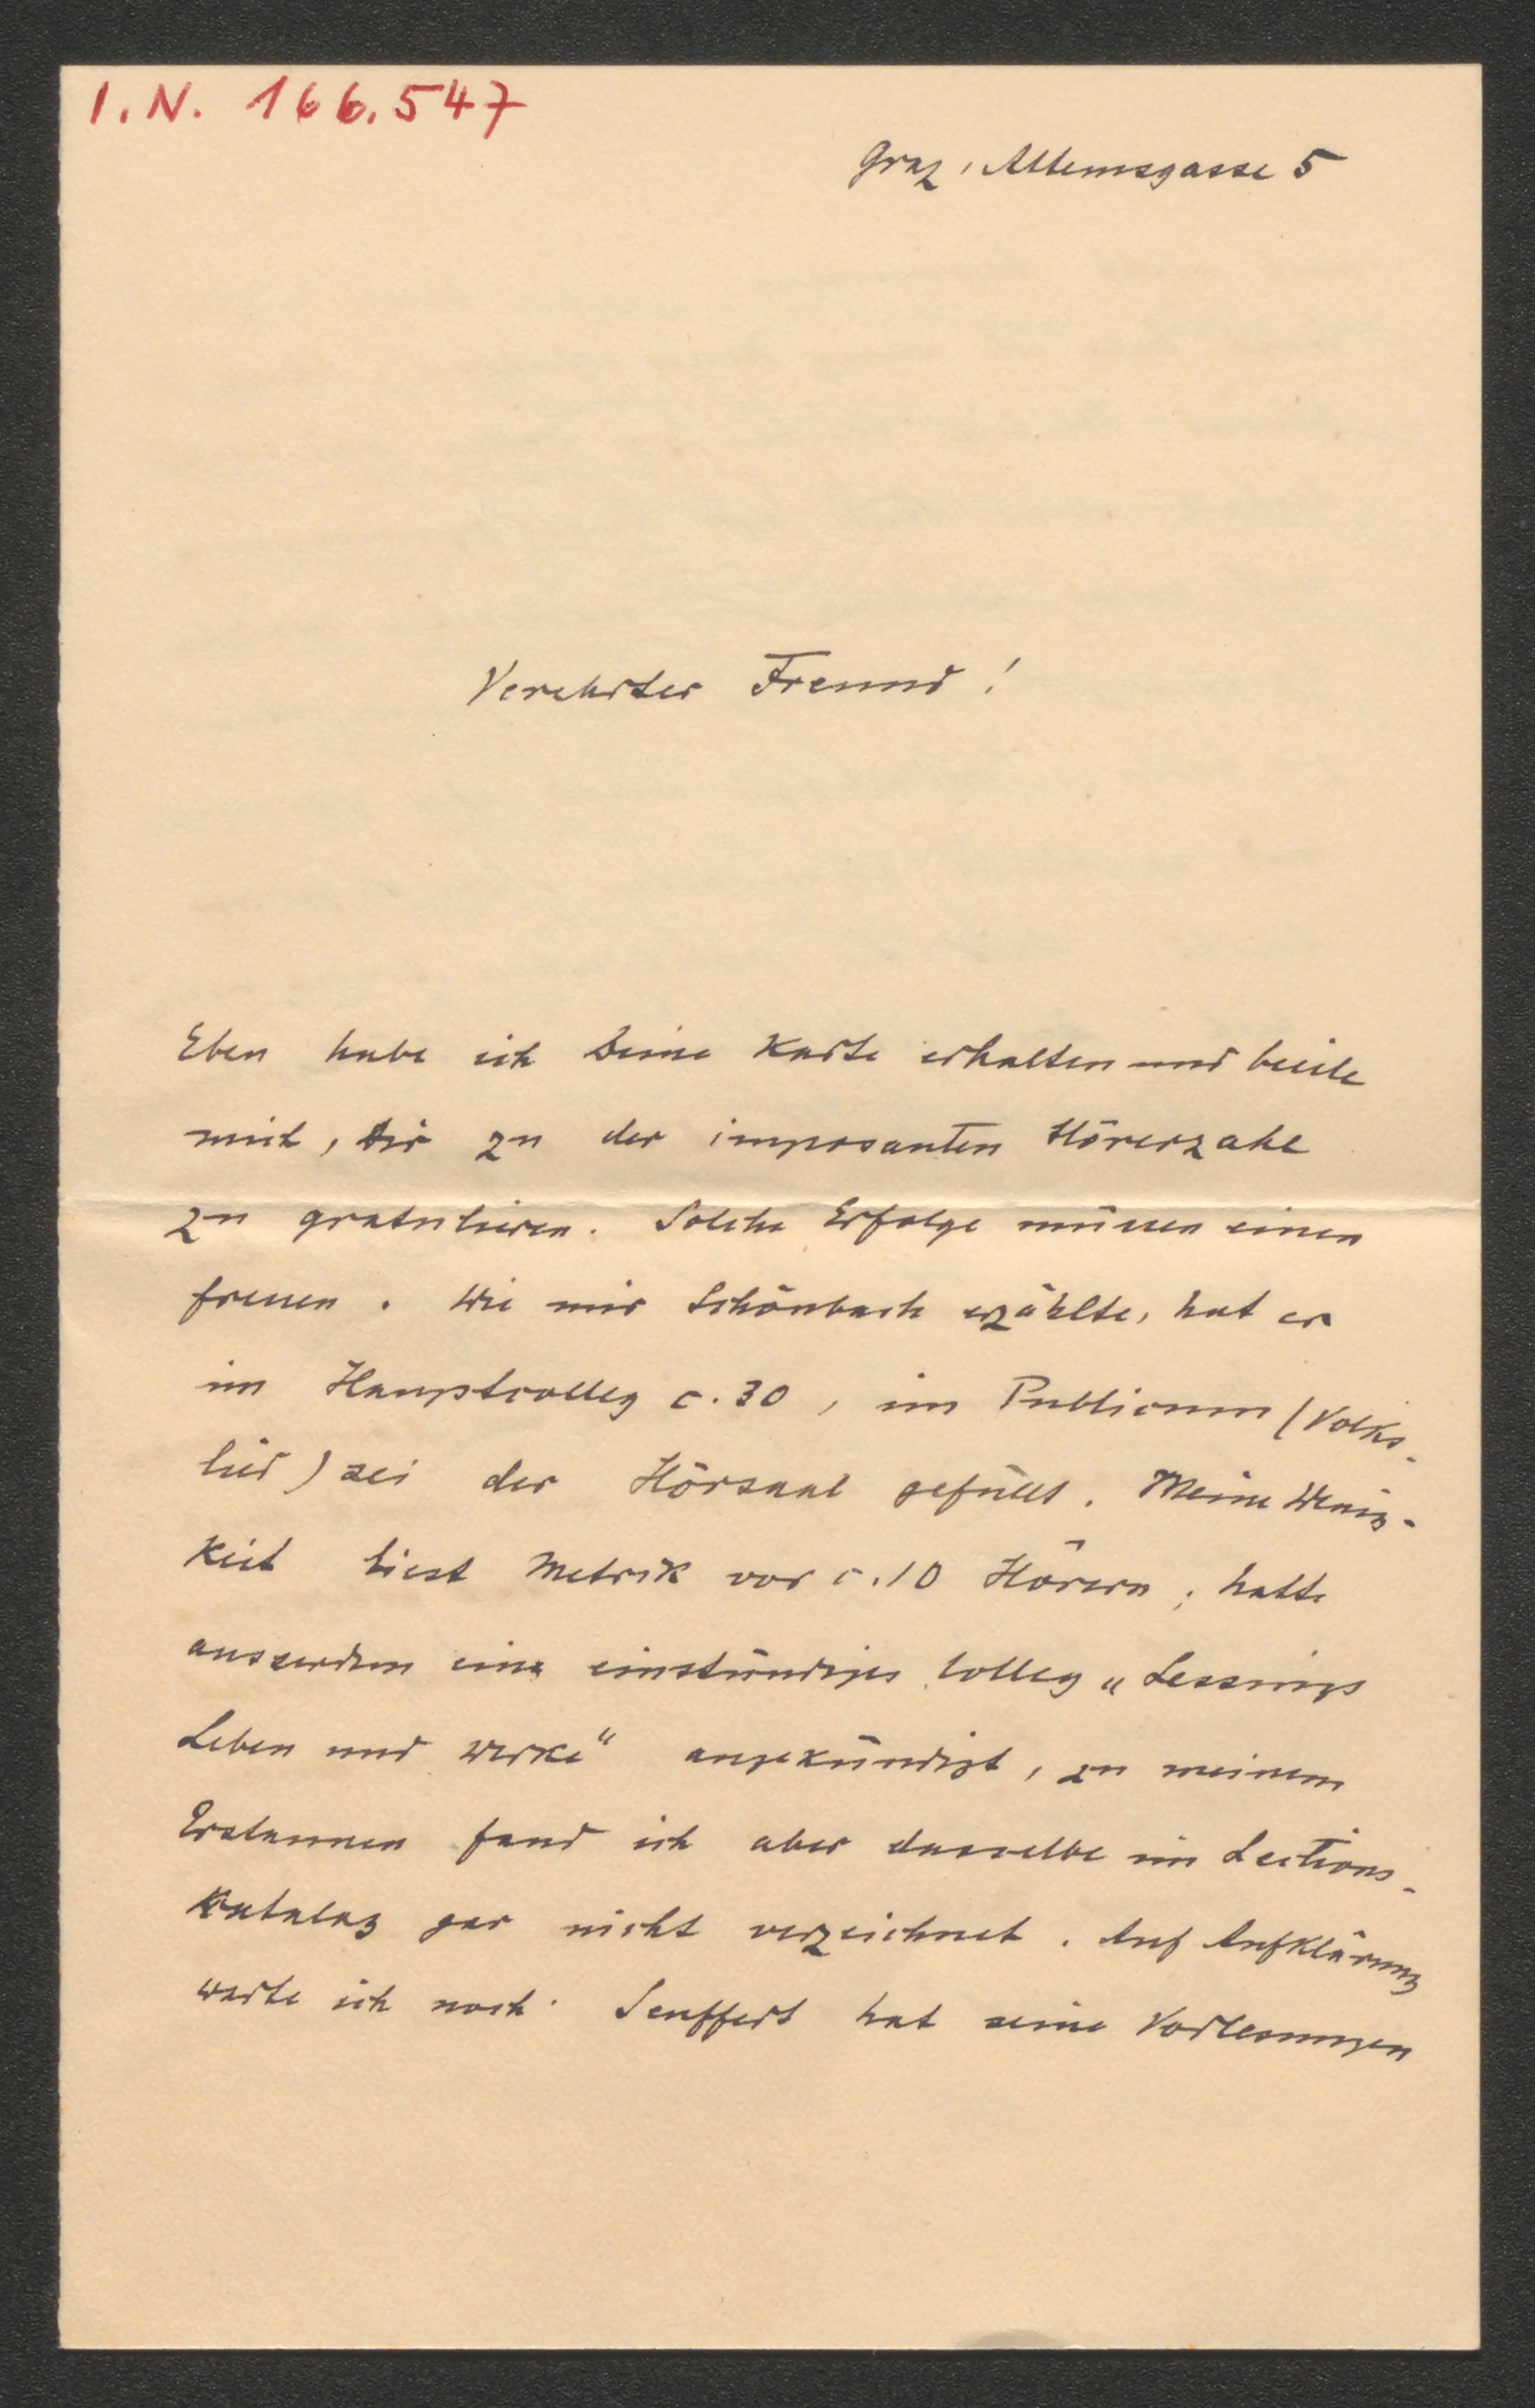 I.N. 166.547
Graz, Attemsgasse 5
Verehrter Freund!
Eben habe ich Deine Karte erhalten und beeile
mich, Dir zu der imposanten Hörerzahl
zu gratulieren. Solche Erfolge müssen einen
freuen. Wie mir Schönbach erzählte, hat er
im Hauptcolleg c. 30, im Publicum (Volks-
lied) sei der Hörsaal gefüllt. Meine Wenig-
keit liest Metrik vor c. 10 Hörern; hatte
ausserdem ein einstündiges Colleg „Lessings
Leben und Werke“ angekündigt, zu meinem
Erstaunen fand ich aber dasselbe im Lections-
Katalog gar nicht verzeichnet. Auf Aufklärung
warte ich noch. Seuffert hat seine Vorlesungen